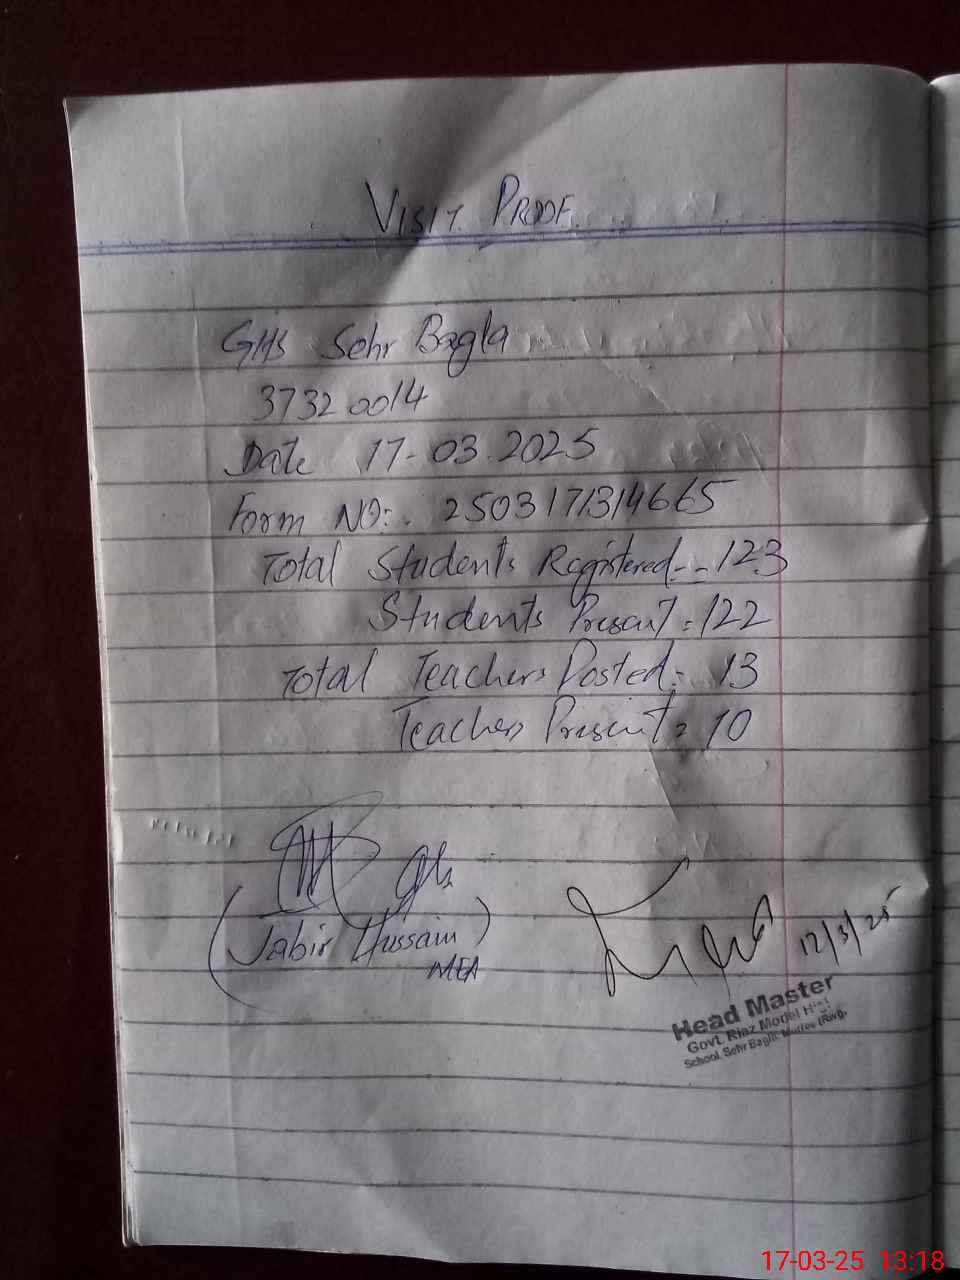 VISIT PROOF
GHS Sehr Bagla
37320014
Date 17-03.2025
Form NO:. 2503171314665
Total Students Registered-- 123
Students Present = 122
Total Teachers Posted = 13
Teachers Present = 10
(Jabir Hussain)
MEA
17/3/25
Head Master
Govt. Riaz Model High
School, Sehr Bagla Murree (Rwp)
17-03-25 13:18